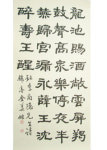 龍池賜酒敞雲屏羯
鼓聲高衆樂停夜半
宴歸宮漏永薛王沉
醉壽王醒